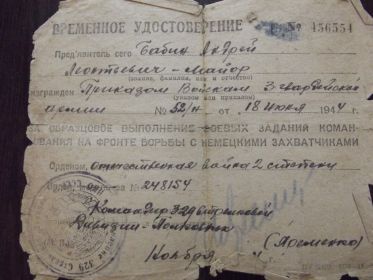 ВРЕМЕННОЕ УДОСТОВЕРЕНИЕ № 436554
Пред'явитель сего Бабич Андрей
Леонтьевич - Майор
(звание, фамилия, имя и отчество)
награжден Приказом Войскам 3 Гвардейской
(указом или приказом)
армии № 52/н от 18 июня 1944
ЗА ОБРАЗЦОВОЕ ВЫПОЛНЕНИЕ БОЕВЫХ ЗАДАНИЙ КОМАН-
ДОВАНИЯ НА ФРОНТЕ БОРЬБЫ С НЕМЕЦКИМИ ЗАХВАТЧИКАМИ
Орденом, отечественная война 2 степени
Орден № 248154
Командир 329 Стрелковой
Дивизии - Полковник
Ноября